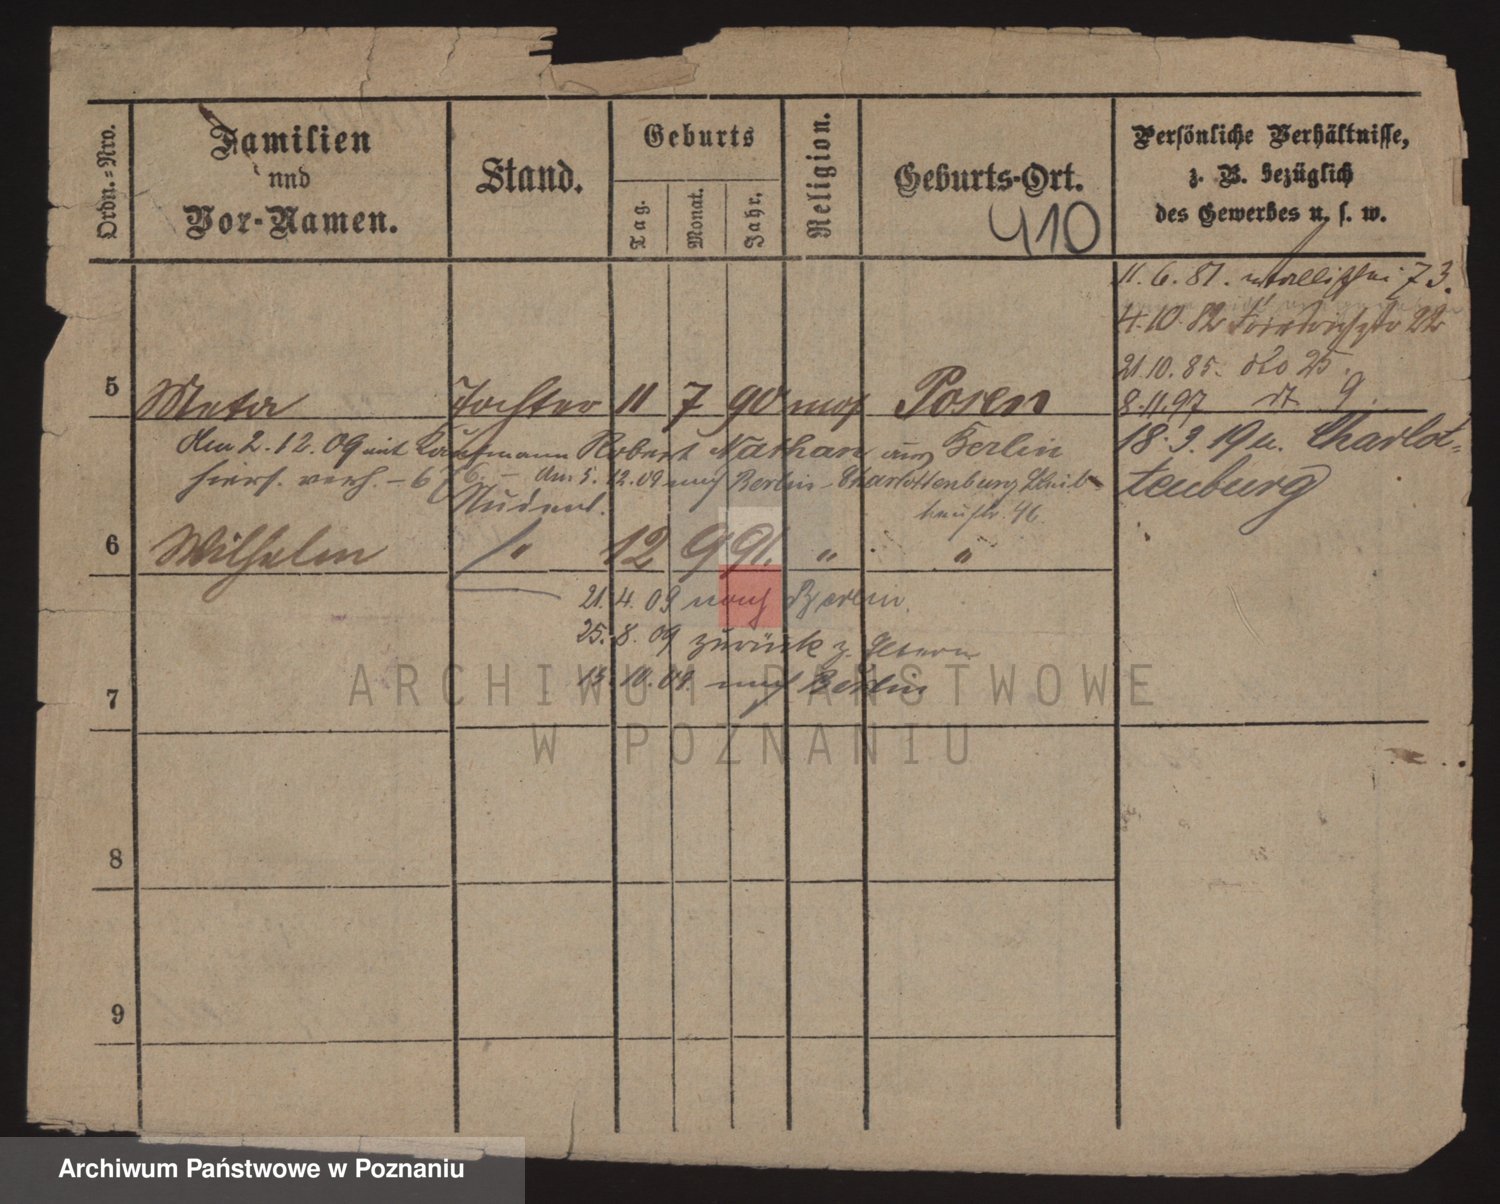 Ordn.=Nro.
Familien
und
Vor-Namen.
Stand.
Geburts
Tag.
Monat.
Jahr.
Religion.
Geburts-Ort.
410
Persönliche Verhältnisse,
z. B. bezüglich
des Gewerbes u. s. w.
11. 6. 81. Wallischei 73.
4. 10. 82 22
21. 10. 85. dto 25.
8. 11. 97 dt 9.
5 Meta Tochter 11 7 90 mos Posen
18. 3. 19 n. Charlot=
tenburg
den 2. 12. 09 mit Kaufmann Robert Nathan aus Berlin
hiers. verh. - 676. - Am 5. 12. 09 nach Berlin - Charlottenburg
46.
Student.
6 Wilhelm " 12 9 91. " "
21. 4. 09 nach Berlin.
25. 8. 09 zurück z. Eltern
13. 10. 09. nach Berlin
7
8
9
ARCHIWUM PAŃSTWOWE
W POZNANIU
Archiwum Państwowe w Poznaniu